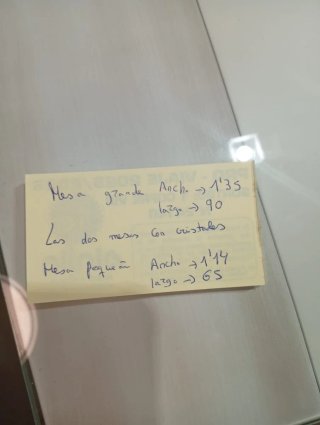 Mesa grande Ancho → 1'35
largo → 90
Las dos mesas con cristales
Mesa pequeña Ancho → 1'14
largo → 65